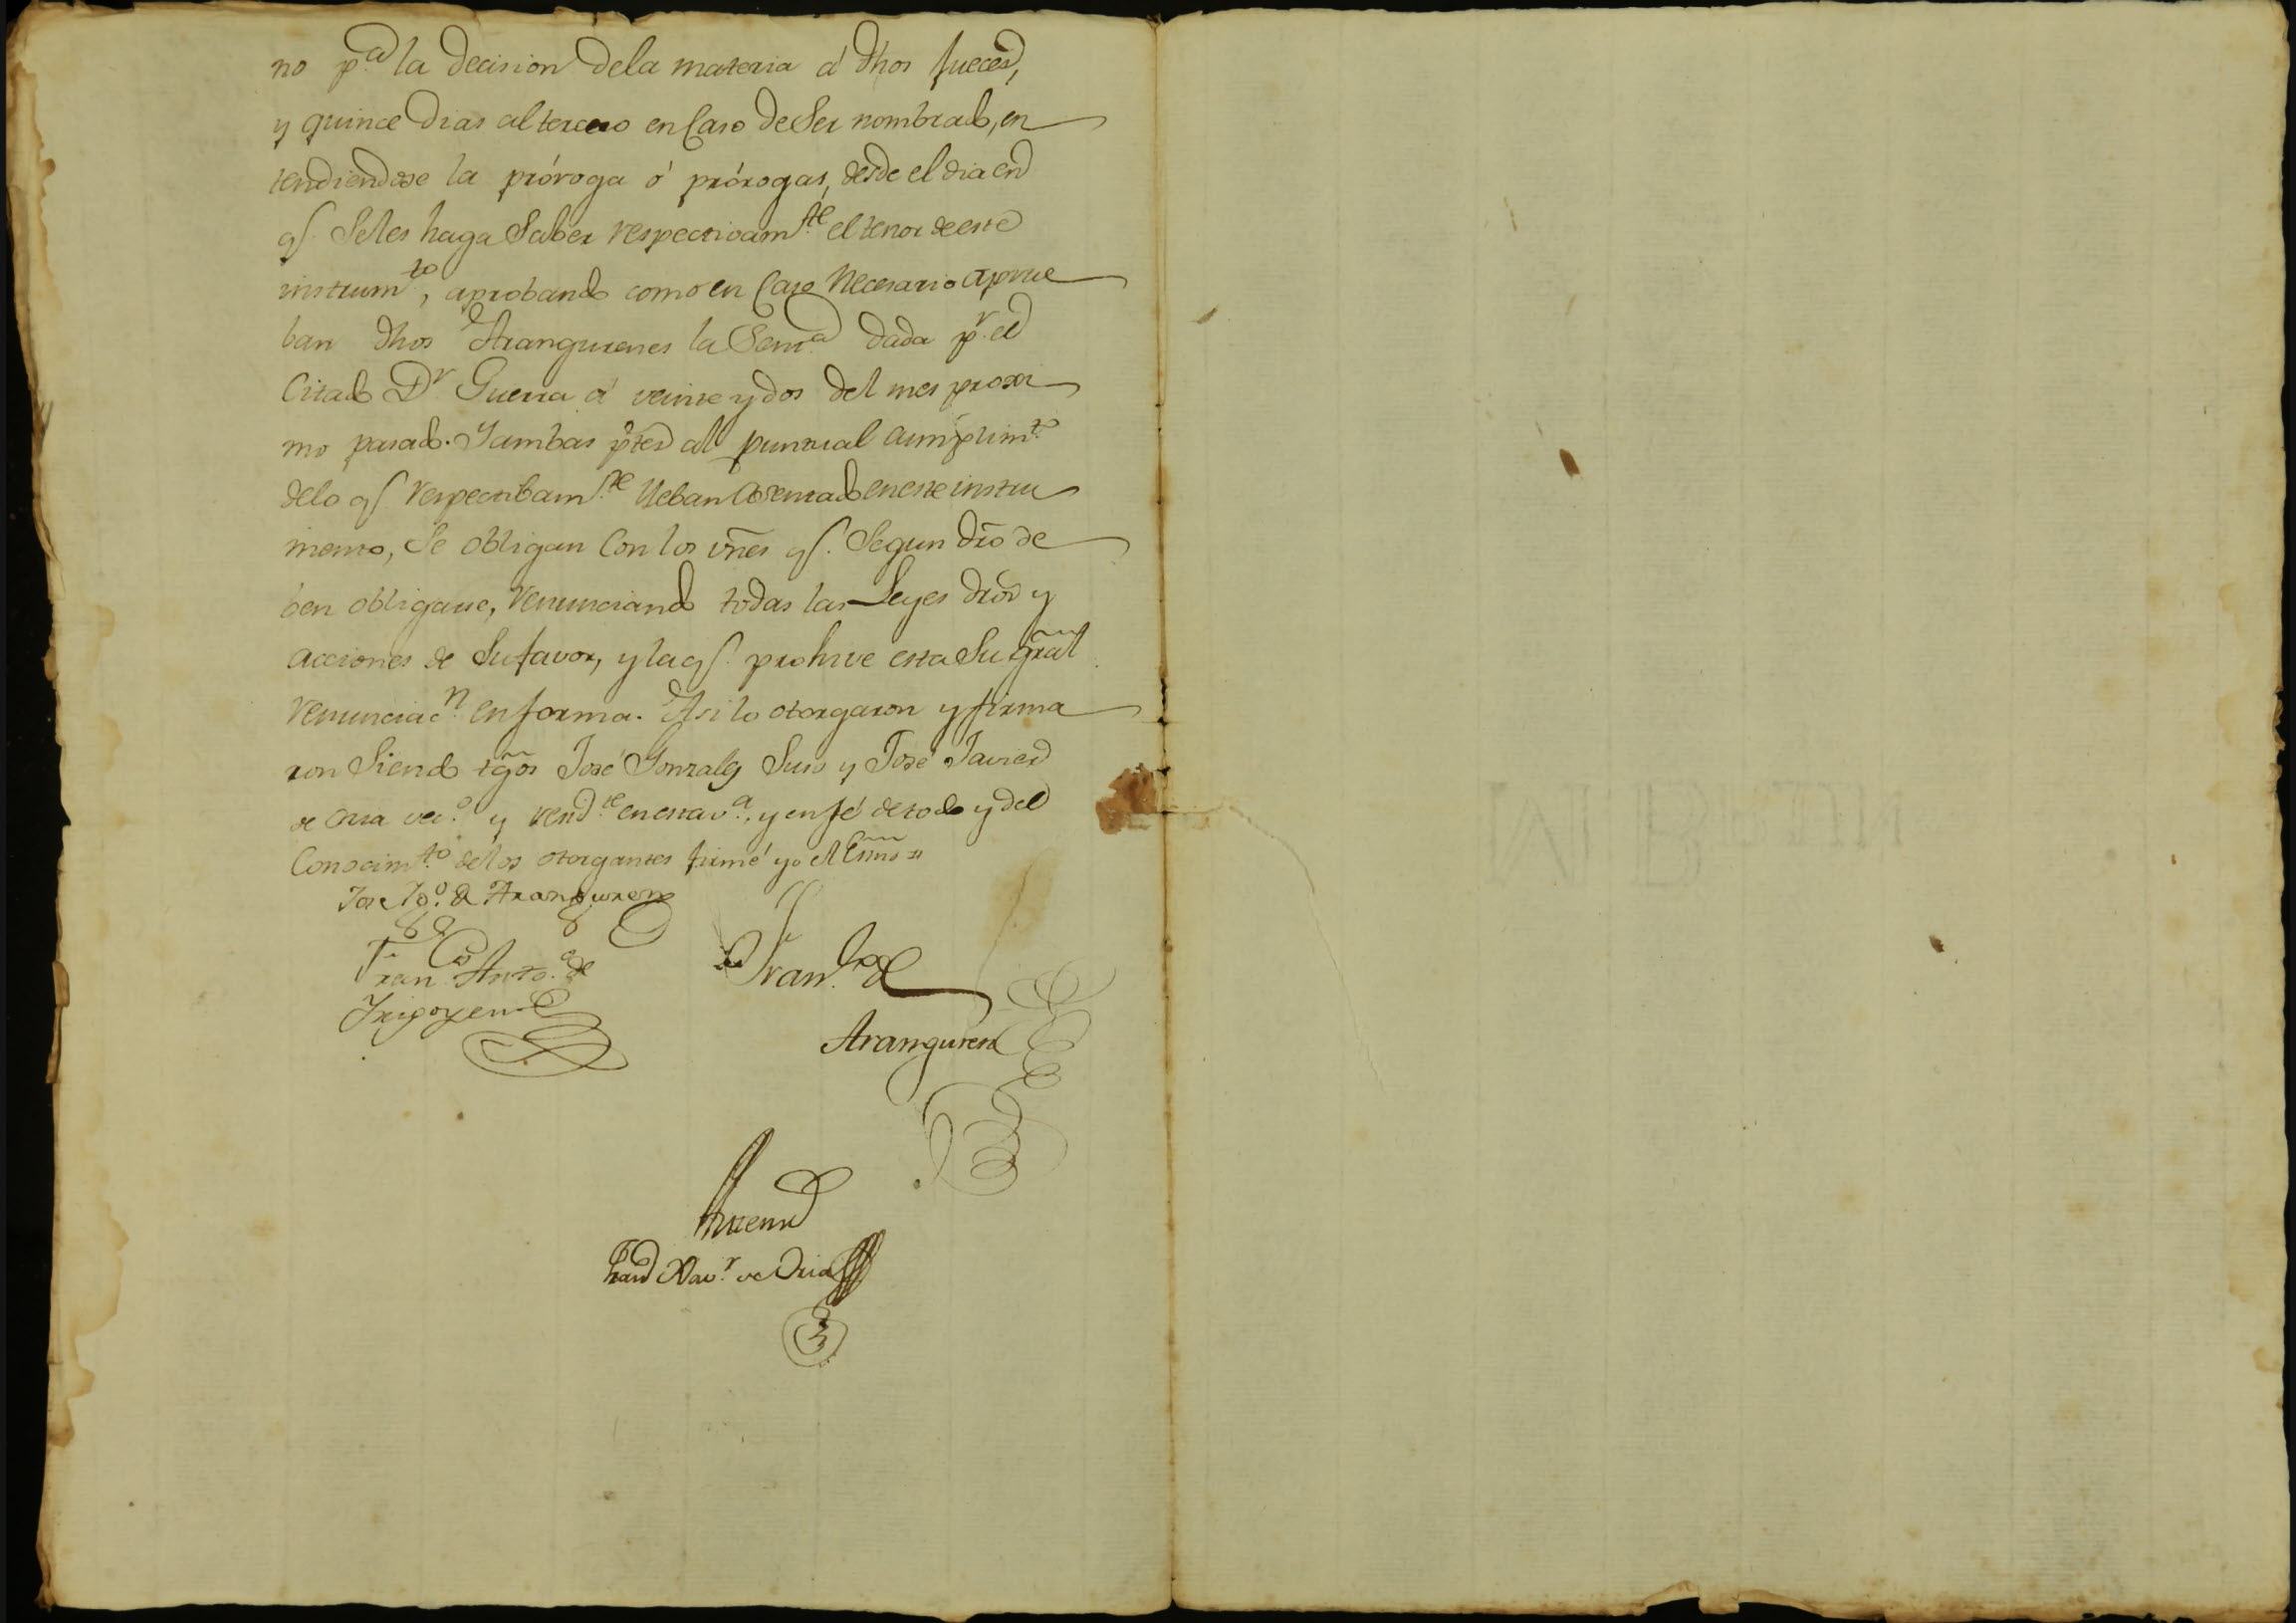 no p.ª la decision dela materia á dhos Jueces,
y quince dias al tercero en Caso de Ser nombrado, en
tendiendose la próroga ó prórogas, desde el dia en
q.e Seles haga Saber respectivam.te el tenor de este
instrum.to, aprobando como en Caso Necesario aprue
ban dhos Arangurenes la Sent.ª dada p.r el
Citado D.r Guerra á veinte y dos del mes proxi
mo pasado. Y ambas ptes al puntual cumplim.to
delo q.e respectibam.te lleban asentado en este instru
mento, Se obligan Con los vnes q.e Segun dro de
ben obligarse, renunciando todas las Leyes dros y
acciones de Su favor, y la q.e prohive esta Su gral
renunciac.n en forma. Asi lo otorgaron y firma
ron Siendo tgos José Gonzalez Suso y José Javier
de Oria vec.o y resid.te en esta v.ª, y en fé de todo y del
Conocim.to de los otorgantes firmé yo el Esno =
Jose Ig.o de Aranguren
Fran.co Ant.o de
Yrigoyen
Fran.co de
Aranguren
Antemi
Xav.r de Oria